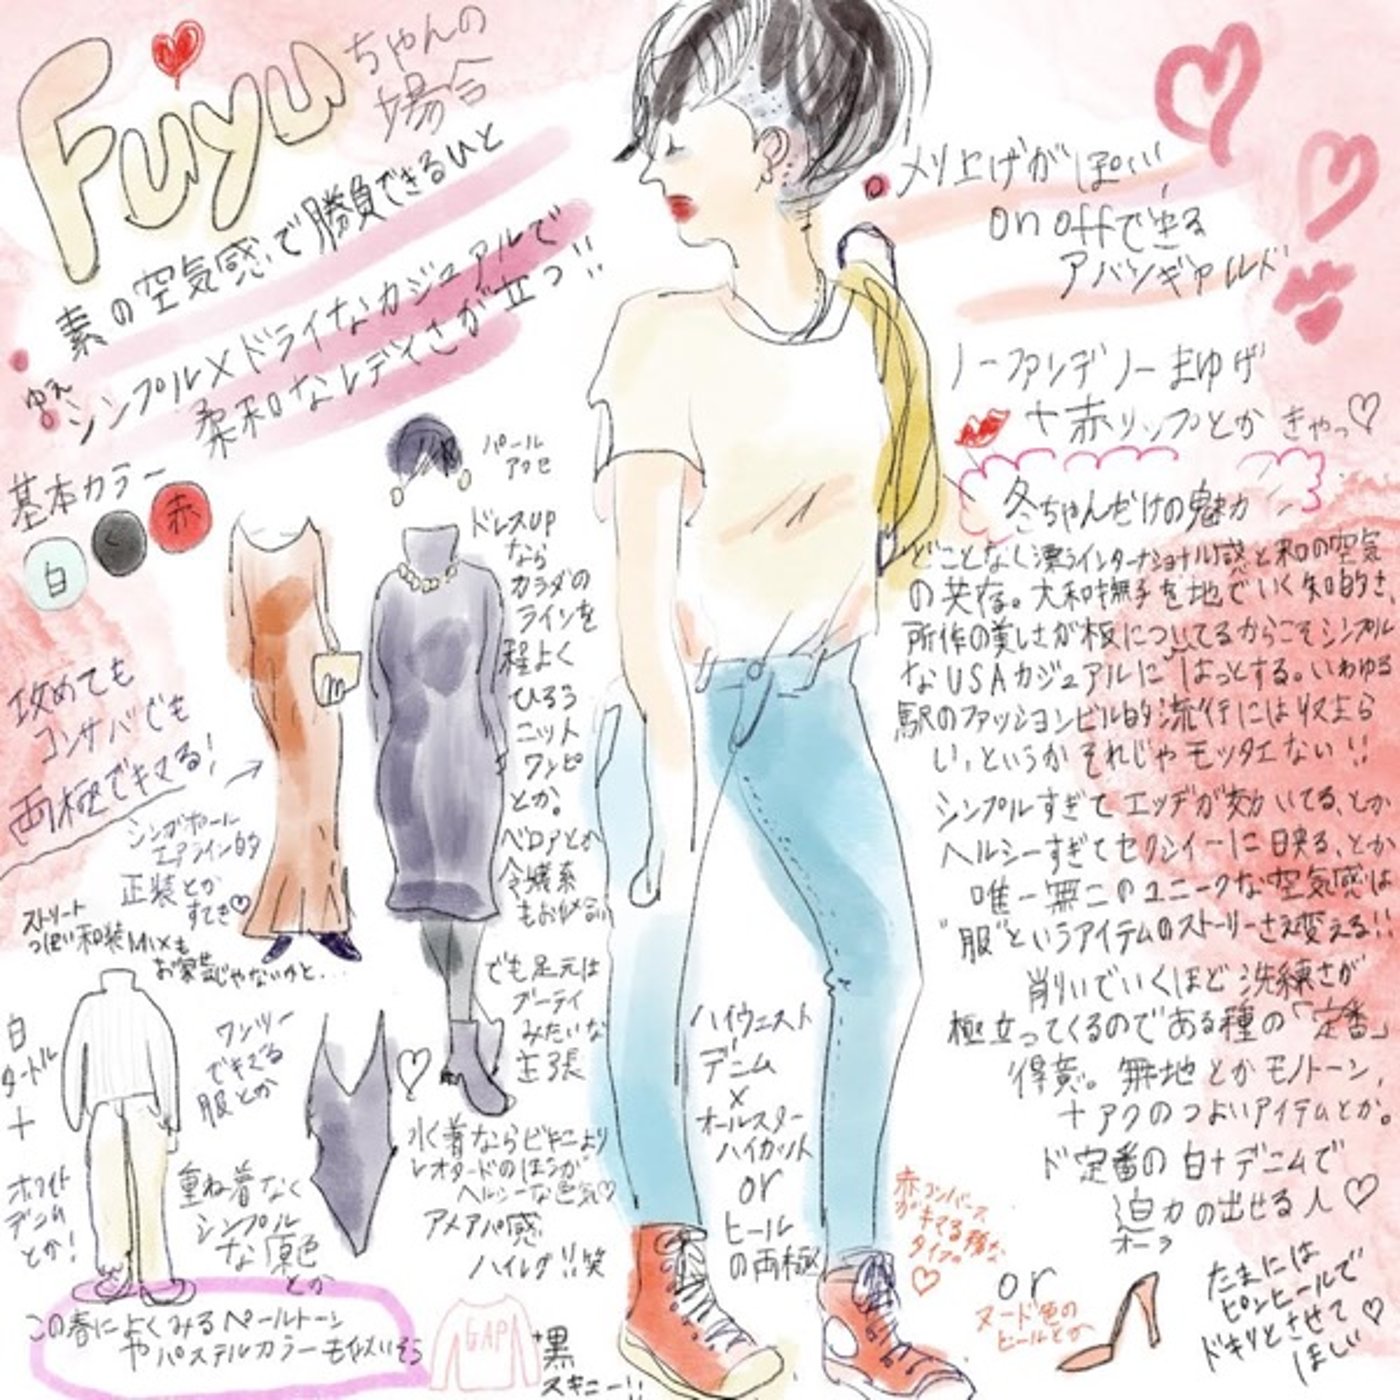 Fuyuちゃんの
場合
素の空気感で勝負できるひと
ゆえ
シンプル×ドライなカジュアルで
柔和なレディさが立つ!!
基本カラー
白
く
赤
攻めても
コンサバでも
両極でキマる!
シンガポール
エアライン的
正装とか
すてき♡
ストリート
っぽい和装MIXも
お家芸じゃないかと...
パール
アクセ
ドレスUP
なら
カラダの
ラインを
程よく
ひろう
ニット
ワンピ
とか。
ベロアとか
令嬢系
もお似合い
でも足元は
ブーティ
みたいな
主張
白
タートル
+
ホワイト
デニム
とか!
ワンツー
でキマる
服とか
重ね着なく
シンプル
な原色
とか
水着ならビキニより
レオタードのほうが
ヘルシーな色気♡
アメアパ感
ハイレグ!!笑
この春によくみるペールトーン
や
パステルカラーも似いそう
GAP
+黒
スキニー!!
刈り上げがぽい!,
on offできる
アバンギャルド
ノーファンデノーまゆげ
+赤リップとか きゃっ♡
冬ちゃんだけの魅力
どことなく漂うインターナショナル感と和の空気
の共存。大和撫子を地でいく知的さ、
所作の美しさが板についてるからこそシンプル
なUSAカジュアルにはっとする。いわゆる
駅のファッションビル的流行には収まら
い、というかそれじゃモッタエない!!
シンプルすぎてエッヂが効いてる、とか
ヘルシーすぎてセクシィーに出来る、とか
唯一無二のユニークな空気感は
"服"というアイテムのストーリーさえ変える!!
削いでいくほど洗練さが
極立ってくるのである種の「定番」
得意。無地とかモノトーン,
+アクのつよいアイテムとか。
ド定番の白+デニムで
迫力の出せる人♡
オーラ
ハイウエスト
デニム
×
オールスター
ハイカット
or
ヒール
の両極
赤コンバース
がキマる稀な
タイプ。
♡
or
ヌード色の
ヒールとか
たまには
ピンヒールで
ドキリとさせて♡
ほしい